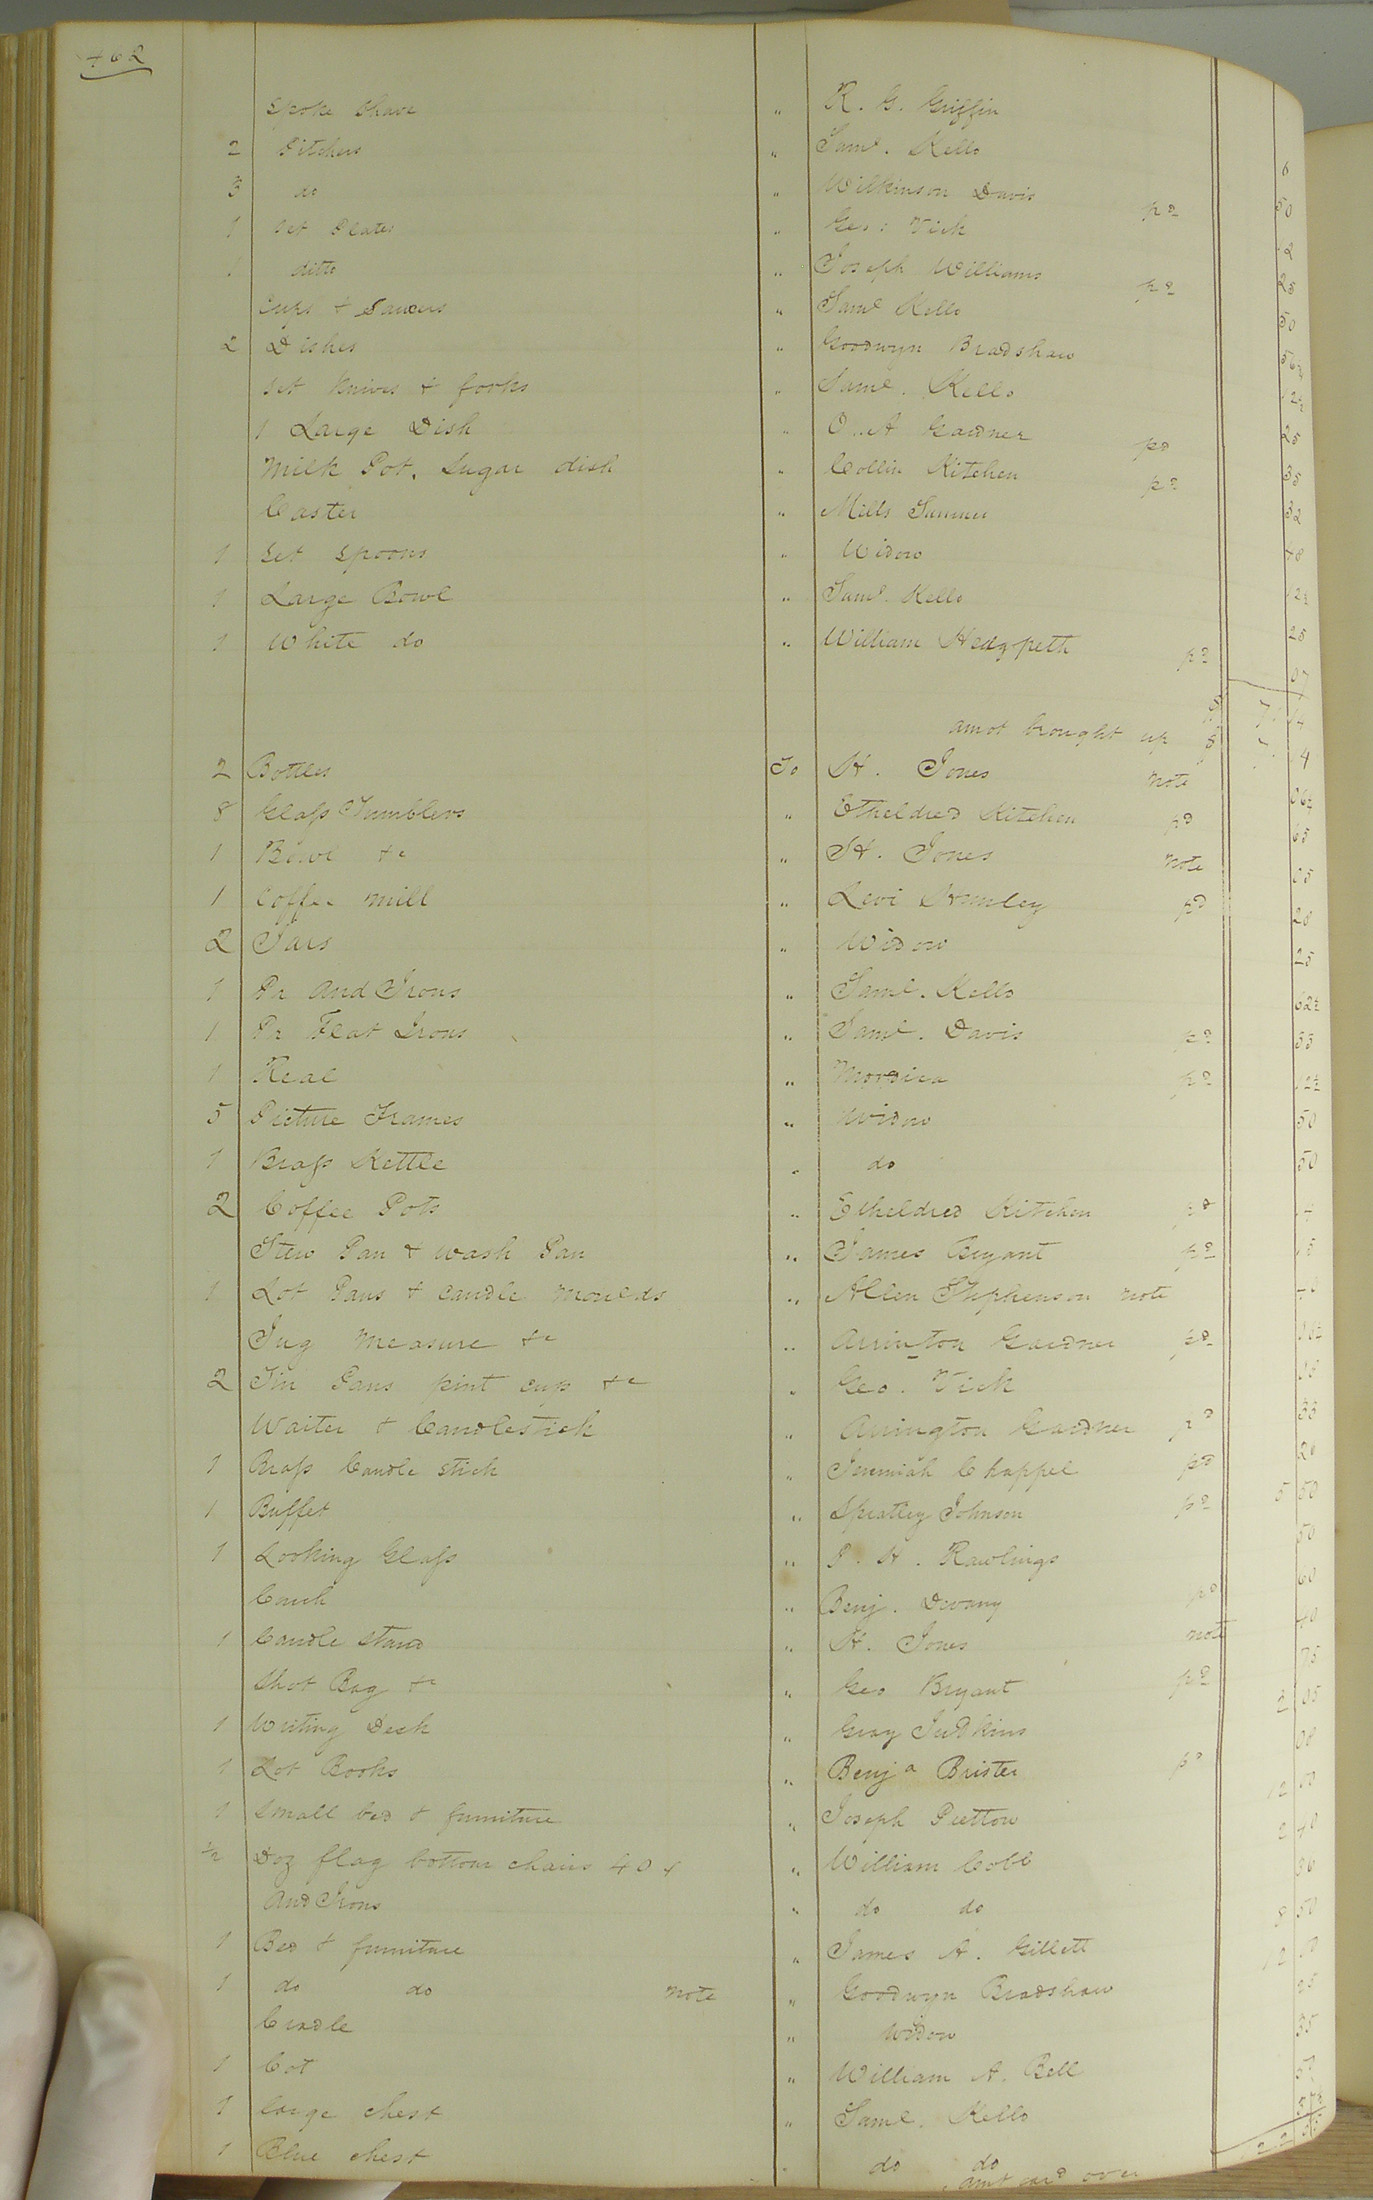 462
Spoke Shave " R. G. Griffin
2 Pitchers " Saml. Kello 6
3 do " Wilkinson Davis pd 50
1 Set Plates " Geo: Vick 12
1 ditto " Joseph Williams pd 25
Cups & Saucers " Saml Kello 50
2 Dishes " Goodwyn Bradshaw 56¼
Set Knives & forks " Saml. Kello 12½
1 Large Dish " O. A Gardner pd 25
Milk Pot, Sugar dish " Collin Kitchen pd 35
Caster " Mills Sumner 32
1 Set Spoons " Widow 48
1 Large Bowl " Saml. Kello 12½
1 White do " William Hedgpeth pd 25
07
amot brought up $
2 Bottles To H. Jones note 4
8 Glass Tumblers " Etheldred Kitchen pd 06¼
1 Bowl &c " H. Jones note 65
1 Coffee mill " Levi pd 05
2 Jars " Widow 28
1 Pr And Irons " Saml. Kello 25
1 Pr Flat Irons " Saml. Davis pd 62½
1 Real " pd 55
5 Picture Frames " Widow 12½
1 Brass Kettle " do 50
2 Coffee Pots " Etheldred Kitchen pd 50
Stew Pan & wash Pan " James Bryant pd
1 Lot Pans & candle moulds " Allen Stephenson note
Jug Measure &c " Arrington Gardner pd
2 Tin Pans pint cup &c " Geo. Vick
Waiter & Candlestick " Arrington Gardner pd
1 Brass Candle Stick " Jeremiah Chappel pd
1 Buffet " Spratley Johnson pd 5 50
1 Looking Glass " P. H. Rawlings 50
Couch " Benj. Devany pd 60
1 Candle Stand " H. Jones note
Shot Bag &c " Geo Bryant pd 75
1 Writing Desk " Gray Judkins 2 05
1 Lot Books " Benja Brister pd 08
1 Small bed & furniture " Joseph Pretlow 12 00
½ Doz flag bottom chairs 40 c " William Cobb 2 40
And Irons " do do 36
1 Bed & furniture " James A. Gillett 8 50
1 do do note " Goodwyn Bradshaw 12 50
Cradle " Widow 25
1 Cot " William A. Bell 35
1 large chest " Saml. Kello
1 Blue chest " do do
amt card over